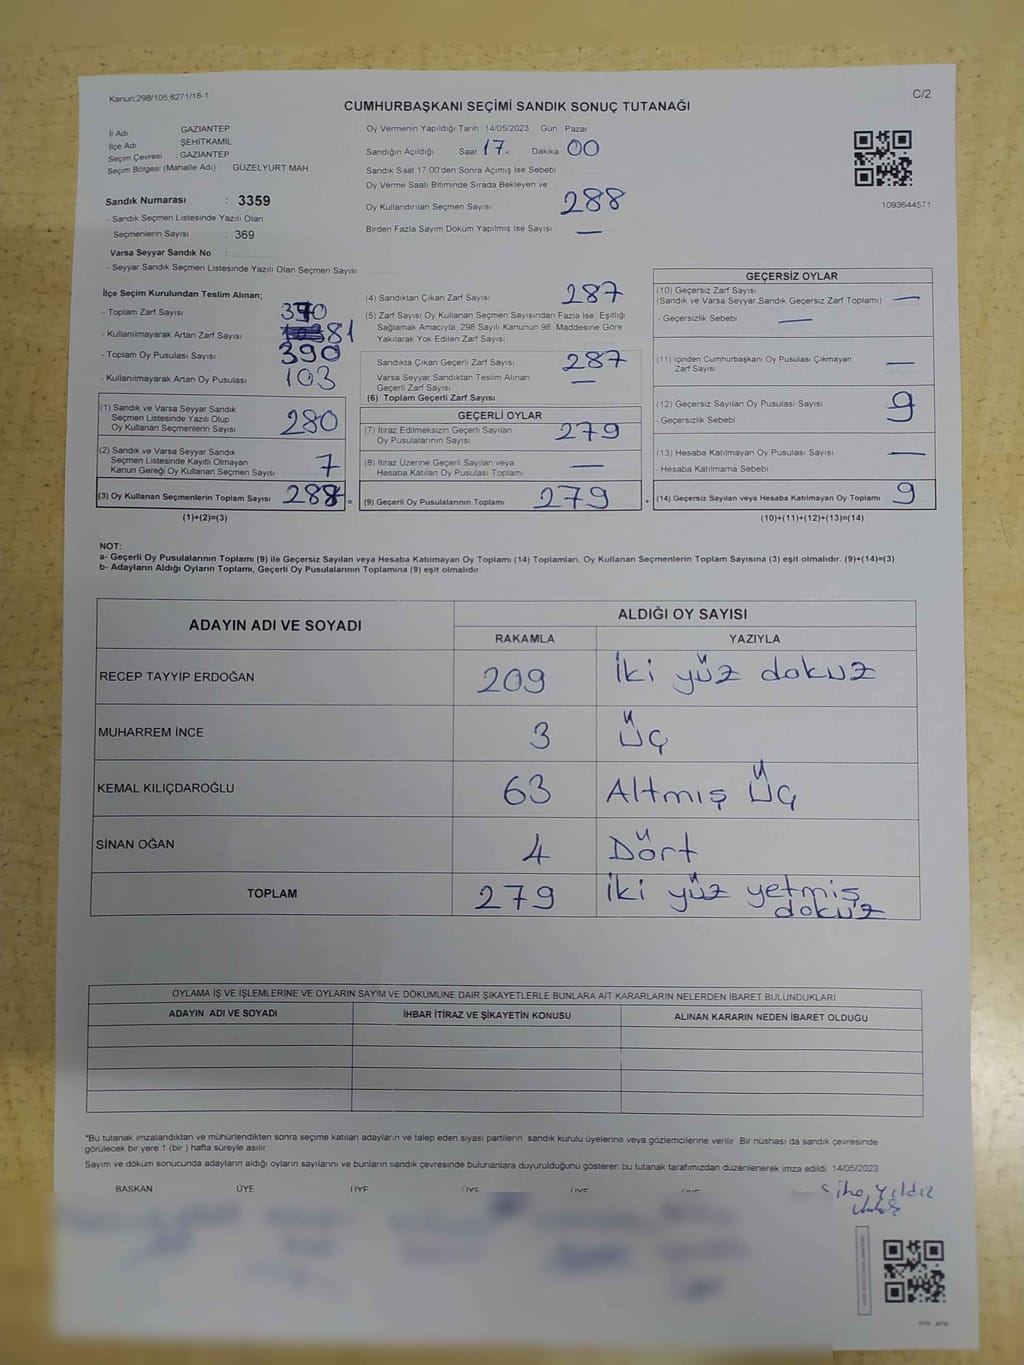 Kanun:298/105;6271/18-1
C/2
CUMHURBAŞKANI SEÇİMİ SANDIK SONUÇ TUTANAĞI
İl Adı GAZİANTEP
İlçe Adı ŞEHİTKAMİL
Seçim Çevresi : GAZİANTEP
Seçim Bölgesi (Mahalle Adı) GÜZELYURT MAH
Sandık Numarası : 3359
- Sandık Seçmen Listesinde Yazılı Olan
Seçmenlerin Sayısı : 369
Varsa Seyyar Sandık No :
- Seyyar Sandık Seçmen Listesinde Yazılı Olan Seçmen Sayısı
Oy Vermenin Yapıldığı Tarih 14/05/2023 Gün Pazar
Sandığın Açıldığı Saat 17. Dakika 00
Sandık Saat 17:00'den Sonra Açılmış İse Sebebi
Oy Verme Saati Bitiminde Sırada Bekleyen ve
Oy Kullandırılan Seçmen Sayısı 288
Birden Fazla Sayım Döküm Yapılmış İse Sayısı —
1093644571
İlçe Seçim Kurulundan Teslim Alınan;
- Toplam Zarf Sayısı
- Kullanılmayarak Artan Zarf Sayısı 81
- Toplam Oy Pusulası Sayısı 390
- Kullanılmayarak Artan Oy Pusulası 103
(1) Sandık ve Varsa Seyyar Sandık
Seçmen Listesinde Yazılı Olup
Oy Kullanan Seçmenlerin Sayısı 280
(2) Sandık ve Varsa Seyyar Sandık
Seçmen Listesinde Kayıtlı Olmayan
Kanun Gereği Oy Kullanan Seçmen Sayısı 7
(3) Oy Kullanan Seçmenlerin Toplam Sayısı =
(1)+(2)=(3)
(4) Sandıktan Çıkan Zarf Sayısı 287
(5) Zarf Sayısı Oy Kullanan Seçmen Sayısından Fazla İse, Eşitliği
Sağlamak Amacıyla, 298 Sayılı Kanunun 98. Maddesine Göre
Yakılarak Yok Edilen Zarf Sayısı
Sandıkta Çıkan Geçerli Zarf Sayısı 287
Varsa Seyyar Sandıktan Teslim Alınan
Geçerli Zarf Sayısı —
(6) Toplam Geçerli Zarf Sayısı
GEÇERLİ OYLAR
(7) İtiraz Edilmeksizin Geçerli Sayılan
Oy Pusulalarının Sayısı 279
(8) İtiraz Üzerine Geçerli Sayılan veya
Hesaba Katılan Oy Pusulası Toplamı —
(9) Geçerli Oy Pusulalarının Toplamı 279 +
GEÇERSİZ OYLAR
(10) Geçersiz Zarf Sayısı
(Sandık ve Varsa Seyyar Sandık Geçersiz Zarf Toplamı) —
- Geçersizlik Sebebi —
(11) İçinden Cumhurbaşkanı Oy Pusulası Çıkmayan
Zarf Sayısı —
(12) Geçersiz Sayılan Oy Pusulası Sayısı 9
- Geçersizlik Sebebi
(13) Hesaba Katılmayan Oy Pusulası Sayısı —
- Hesaba Katılmama Sebebi
(14) Geçersiz Sayılan veya Hesaba Katılmayan Oy Toplamı 9
(10)+(11)+(12)+(13)=(14)
NOT:
a- Geçerli Oy Pusulalarının Toplamı (9) ile Geçersiz Sayılan veya Hesaba Katılmayan Oy Toplamı (14) Toplamları, Oy Kullanan Seçmenlerin Toplam Sayısına (3) eşit olmalıdır. (9)+(14)=(3)
b- Adayların Aldığı Oyların Toplamı, Geçerli Oy Pusulalarının Toplamına (9) eşit olmalıdır.
ADAYIN ADI VE SOYADI
ALDIĞI OY SAYISI
RAKAMLA YAZIYLA
RECEP TAYYİP ERDOĞAN 209 İki yüz dokuz
MUHARREM İNCE 3 Üç
KEMAL KILIÇDAROĞLU 63 Altmış Üç
SİNAN OĞAN 4 Dört
TOPLAM 279 İki yüz yetmiş
dokuz
OYLAMA İŞ VE İŞLEMLERİNE VE OYLARIN SAYIM VE DÖKÜMÜNE DAİR ŞİKAYETLERLE BUNLARA AİT KARARLARIN NELERDEN İBARET BULUNDUKLARI
ADAYIN ADI VE SOYADI İHBAR İTİRAZ VE ŞİKAYETİN KONUSU ALINAN KARARIN NEDEN İBARET OLDUĞU
*Bu tutanak imzalandıktan ve mühürlendikten sonra seçime katılan adayların ve talep eden siyasi partilerin sandık kurulu üyelerine veya gözlemcilerine verilir. Bir nüshası da sandık çevresinde
görülecek bir yere 1 (bir) hafta süreyle asılır.
Sayım ve döküm sonucunda adayların aldığı oyların sayılarını ve bunların sandık çevresinde bulunanlara duyurulduğunu gösteren bu tutanak tarafımızdan düzenlenerek imza edildi. 14/05/2023
BAŞKAN ÜYE ÜYE ÜYE ÜYE
yıldız